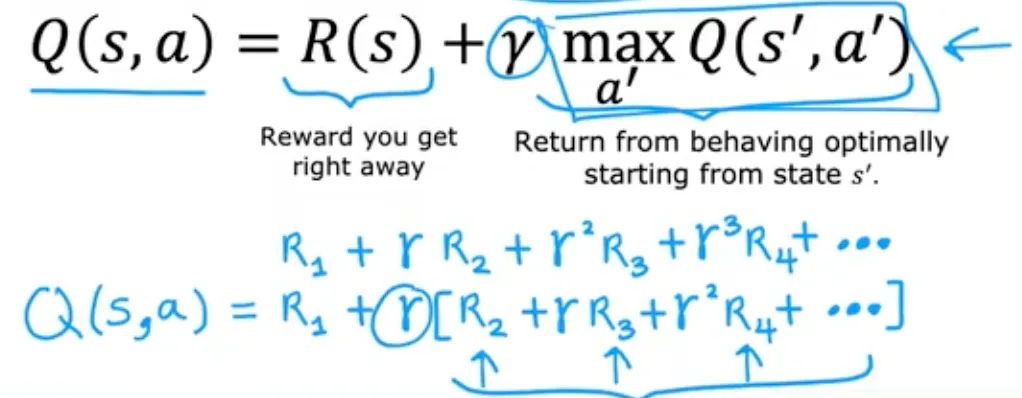 Q(s,a) = R(s) + γ max Q(s′,a′)
a′
Reward you get Return from behaving optimally
right away starting from state s′.
R₁ + γ R₂ + γ²R₃ + γ³R₄ + •••
Q(s,a) = R₁ + γ[R₂ + γ R₃ + γ²R₄ + •••]